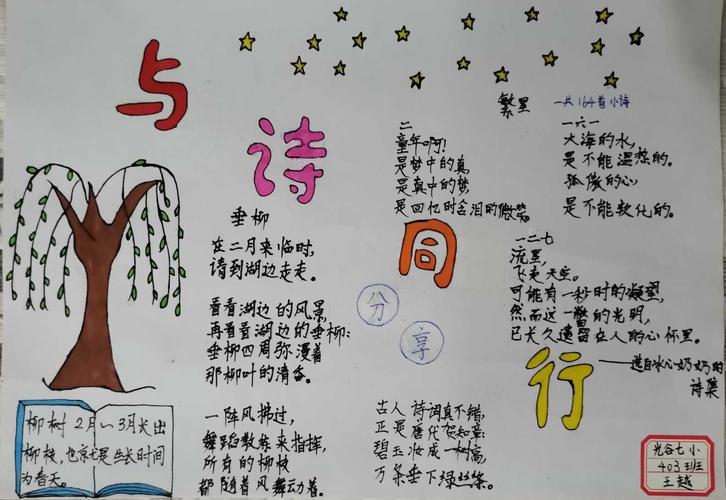 与
诗
同
行
分
享
垂柳
在二月来临时,
请到湖边走走。
看看湖边的风景,
再看看湖边的垂柳:
垂柳四周弥漫着
那柳叶的清香。
一阵风拂过,
舞蹈教练来指挥,
所有的柳枝
都随着风舞动着。
古人诗词真不错,
正是唐代贺知章:
碧玉妆成一树高,
万条垂下绿丝条。
繁星 一共164首小诗
二
童年啊!
是梦中的真,
是真中的梦,
是回忆时含泪的微笑。
一六一
大海的水,
是不能温热的。
孤傲的心,
是不能软化的。
一二七
流星,
飞走天空。
可能有一秒时的凝望,
然而这一瞥的光明,
已长久遗留在人的心怀里。
——选自冰心奶奶的
诗集
柳树2月~3月长出
柳枝,也就是生长时间
为春天。
光谷七小
403班
王越